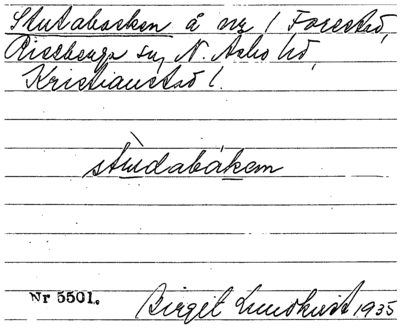 Stutabacken å nr 1 Forestad,
Riseberga sn, N. Åsbo hd,
Kristianstad l.
stùdabákem
Nr 5501. Birgit Lundkvist 1935